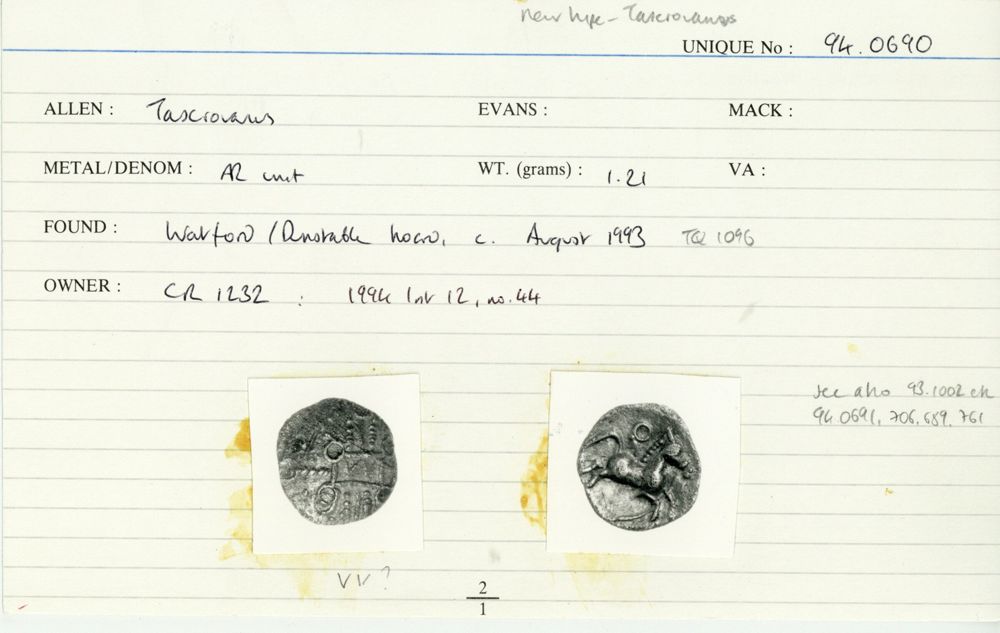 new type - Tasciovanus
UNIQUE No : 94.0690
ALLEN : Tasciovanus EVANS : MACK :
METAL/DENOM : AR unit WT. (grams) : 1.21 VA :
FOUND : Watford / Dunstable hoard, c. August 1993 TQ 1096
OWNER : CR 1232 : 1994 Int 12, no. 44
see also 93.1002 etc
94.0691, 706, 689, 761
VV ?
2
1